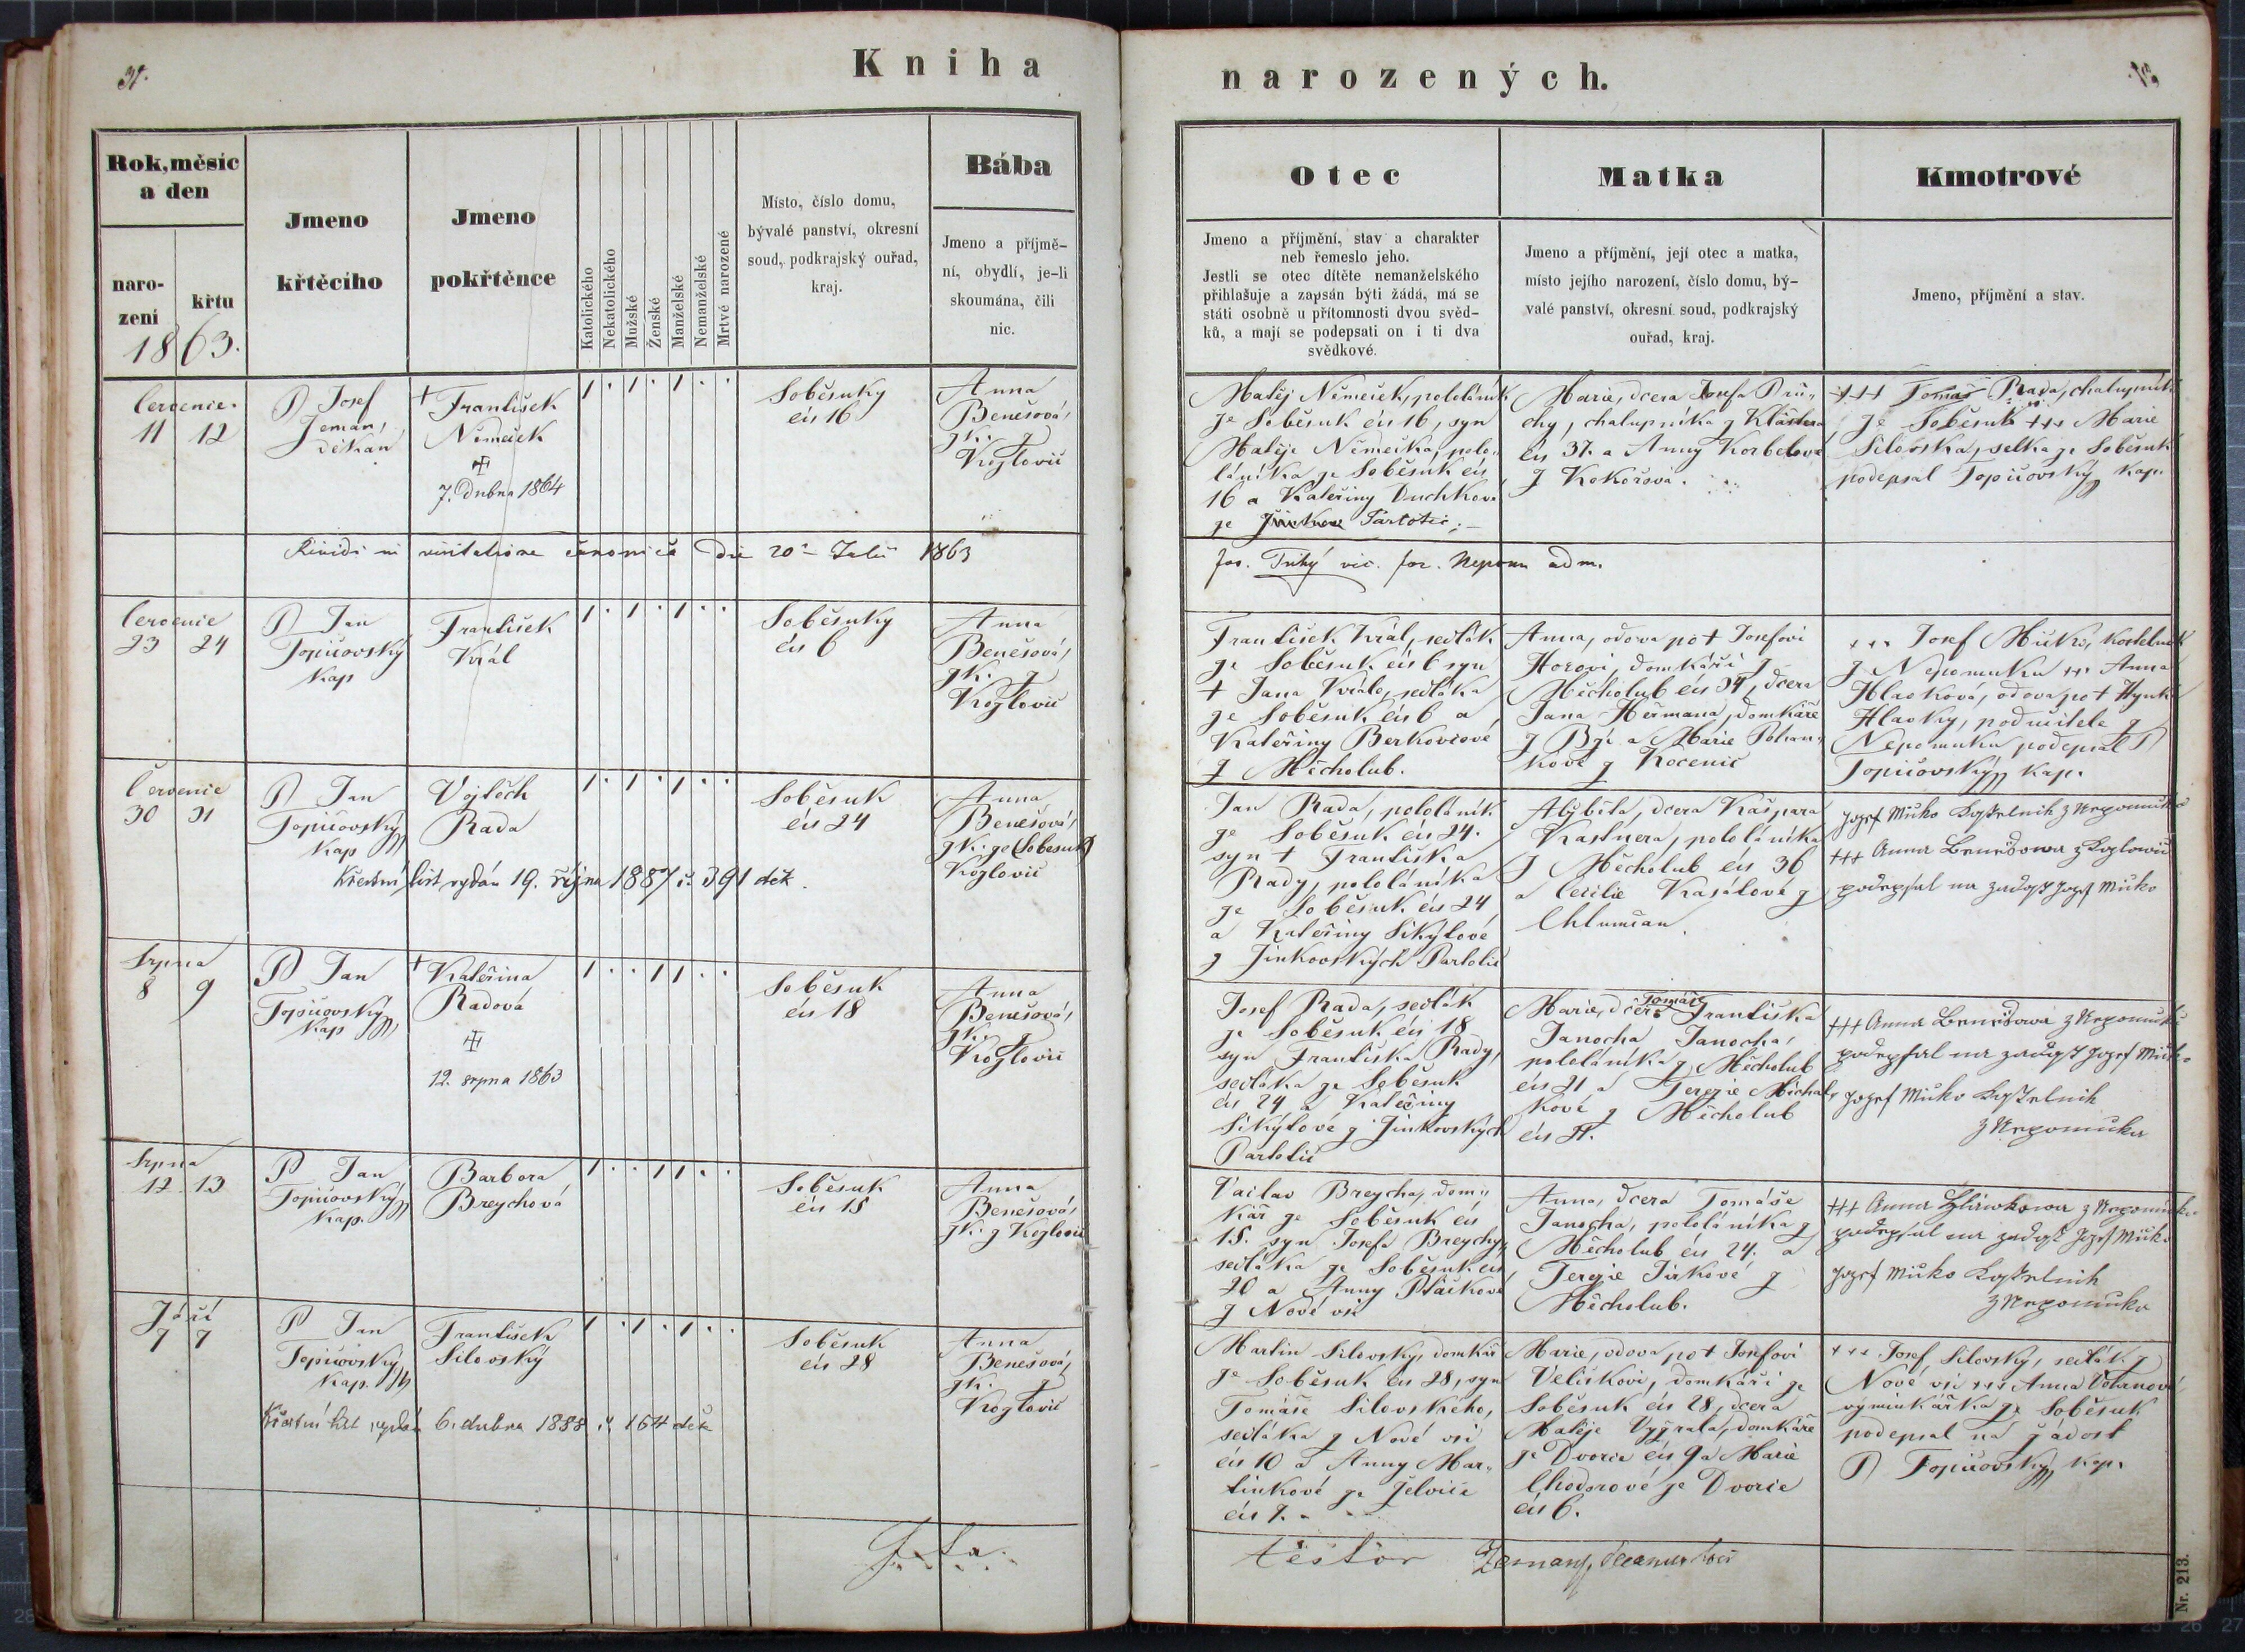 Kniha narozených.
Rok, měsíc
a den
naro-
zení
křtu
1863.
Jmeno
křtěcího
Jmeno
pokřtěnce
Katolického
Nekatolického
Mužské
Ženské
Manželské
Nemanželské
Mrtvé narozené
Místo, číslo domu,
bývalé panství, okresní
soud, podkrajský ouřad,
kraj.
Bába
Jmeno a příjmě-
ní, obydlí, je-li
skoumána, čili
nic.
Otec
Jmeno a příjmění, stav a charakter
neb řemeslo jeho.
Jestli se otec dítěte nemanželského
přihlašuje a zapsán býti žádá, má se
státi osobně u přítomnosti dvou svěd-
ků, a mají se podepsati on i ti dva
svědkové.
Matka
Jmeno a příjmění, její otec a matka,
místo jejího narození, číslo domu, bý-
valé panství, okresní soud, podkrajský
ouřad, kraj.
Kmotrové
Jmeno, příjmění a stav.
červenic
11 12
P Josef
Zeman,
děkan
+ František
Němeček
7. dubna 1864
1 . 1 . 1 . .
Soběsuky
čís 16
Anna
Benešová,
zk. z
Kozlovic
Matěj Němeček, pololáník
ze Soběsuk čís 16, syn
Matěje Němečka, polo-
láníka ze Soběsuk čís
16 a Kateřiny Duchkové
ze Partotic
Marie, dcera Josefa Prů-
chy, chalupníka z Kláštera
čís 37. a Anny Korbelové
z Kokořova.
+++ Tomáš Rada, chalupník
ze Soběsuk +++ Marie
Silovská, selka ze Soběsuk
podepsal Topičovský kap.
Revidi in visitatione canonica die 20 Julii 1863
Jos. Tuhý vic. for. Nepom adm.
červenic
23 24
P Jan
Topičovský
kap
František
Král
1 . 1 . 1 . .
Soběsuky
čís 6
Anna
Benešová,
zk. z
Kozlovic
František Král, sedlák
ze Soběsuk čís 6 syn
+ Jana Krále, sedláka
ze Soběsuk čís 6 a
Kateřiny Berkovcové
z Měcholub.
Anna, vdova po + Josefovi
Horovi, domkáři z
Měcholub čís 34, dcera
Jana Heřmana, domkáře
z Bzí a Marie Pohan-
kové z Kocenic
+++ Josef Míčko, kostelník
z Nepomuku +++ Anna
Hlavková, vdova po + Hynku
Hlavky, podučitele z
Nepomuku podepsal P
Topičovský kap.
Červenic
30 31
P Jan
Topičovský
kap
Vojtěch
Rada
1 . 1 . 1 . .
Soběsuk
čís 24
Anna
Benešová,
zk. ze (Sobesuk)
Kozlovic
Křestní list vydán 19. října 1887 č. 391 děk.
Jan Rada, pololáník
ze Soběsuk čís 24.
syn + Františka
Rady, pololáníka
ze Soběsuk čís 24
a Kateřiny Sikýtové
z Jinkovských Partotic
Alžběta, dcera Kašpara
Kastnera, pololáníka
z Měcholub čís 36
a Cecilie Kasálové z
Chlumčan.
Jozef Míčko Kostelnik z Nepomuka
+++ Anna Benešowa z Kozlowic
podepsal na zadost Jozef Mičko
Srpna
8 9
P Jan
Topičovský
kap
+ Kateřina
Radová
12. srpna 1863
1 . . 1 1 . .
Soběsuk
čís 18
Anna
Benešová,
zk. z
Kozlovic
Josef Rada, sedlák
ze Soběsuk čís 18
syn Františka Rady,
sedláka ze Soběsuk
čís 24 a Kateřiny
Sikýtové z Jinkovských
Partotic
Marie, dcera Tomáše Františka
Janocha Janocha,
pololáníka z Měcholub
čís 21 a Terezie Míchal-
kové z Měcholub
čís 21.
+++ Anna Benešowa z Nepomuka
podepsal na zadost Jozef Mičko
Jozef Mičko Kostelnik
z Nepomuka
Srpna
12 13
P Jan
Topičovský
kap.
Barbora
Breychová
1 . . 1 1 . .
Soběsuk
čís 15
Anna
Benešová,
zk. z Kozlovic
Václav Breycha, dom-
kář ze Soběsuk čís
15. syn Josefa Breychy,
sedláka ze Soběsuk čís
20 a Anny Ptáčkové
z Nové vsi
Anna, dcera Tomáše
Janocha, pololáníka z
Měcholub čís 24. a
Terezie Jirkové z
Měcholub.
+++ Anna Hlawkowa z Nepomuka
podepsal na zadost Jozef Mičko
Jozef Mičko Kostelnik
z Nepomuka
Září
7 7
P Jan
Topičovský
kap.
František
Silovský
1 . 1 . 1 . .
Soběsuk
čís 28
Anna
Benešová,
zk. z
Kozlovic
Křestní list vydán 6. dubna 1888 č. 164 děk
Martin Silovský, domkář
ze Soběsuk čís 28, syn
Tomáše Silovského,
sedláka z Nové vsi
čís 10 a Anny Mar-
tinkové ze Želvice
čís 7.
Marie, vdova po + Josefovi
Veliškovi, domkáři ze
Soběsuk čís 28, dcera
Matěje Vyzrala, domkáře
ze Dvorce čís 9 a Marie
Chodorové ze Dvorce
čís 6.
+++ Josef Silovský, sedlák z
Nové vsi +++ Anna Votanová
výminkářka ze Soběsuk
podepsal na žádost
P Topičovský kap.
Ita testor Zeman,
Nr. 213.